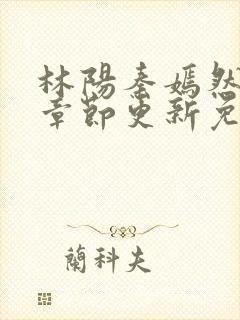 林陽秦嫣然
章節更新免
蘭科夫